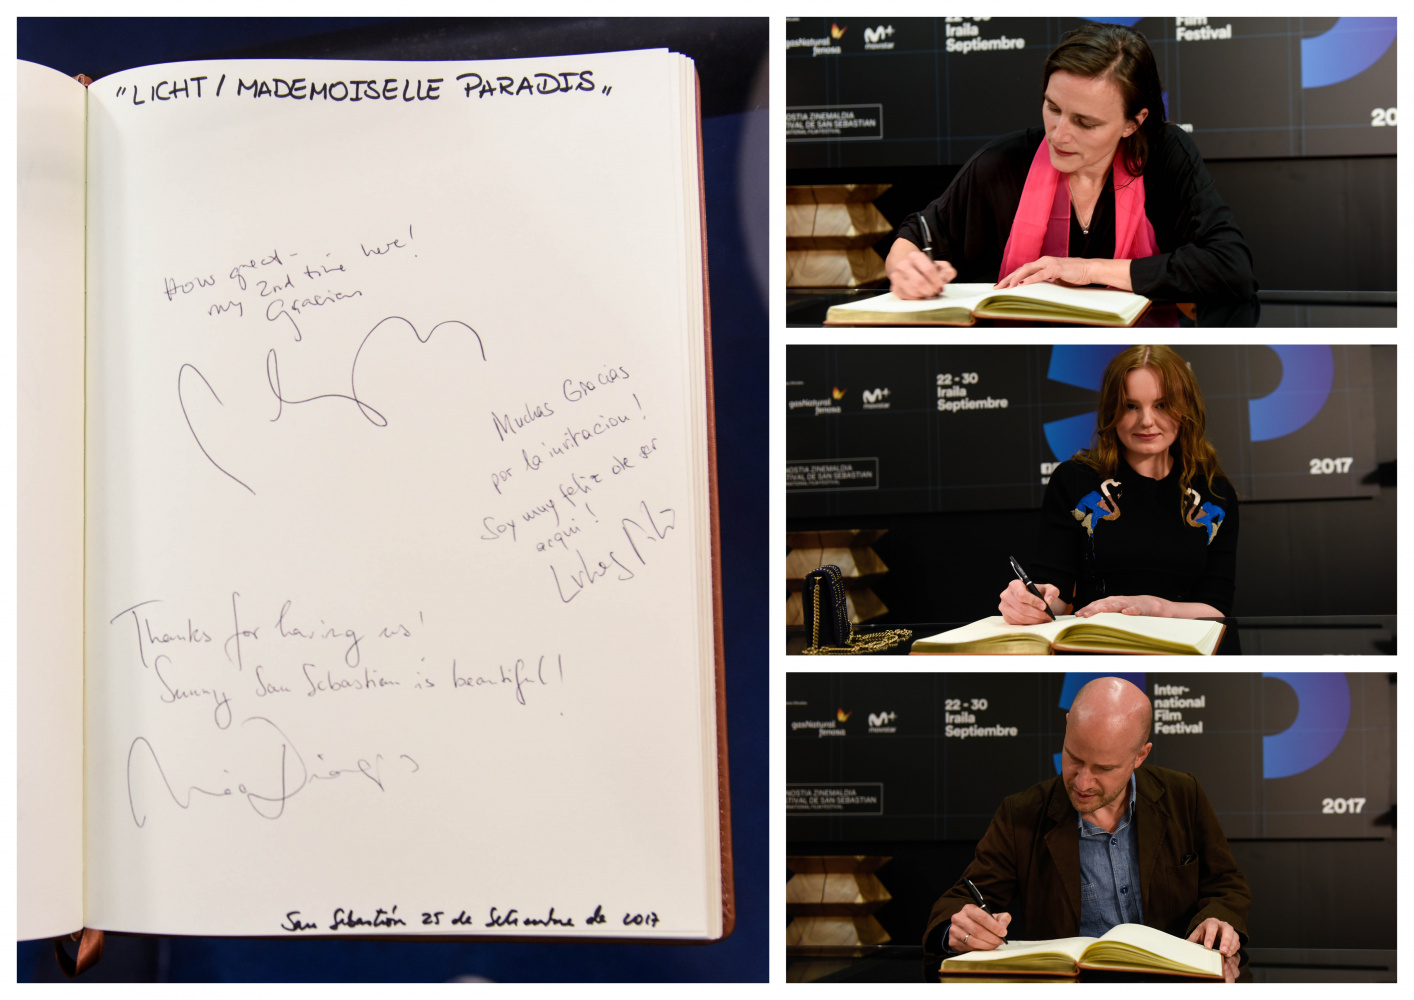 "LICHT / MADEMOISELLE PARADIS"
How great-
my 2nd time here!
Gracias
Muchas Gracias
por la invitacion!
Soy muy feliz de ser
acqui!
Thanks for having us!
Sunny San Sebastian is beautiful!
San Sebastián 25 de Setiembre de 2017
gasNatural
fenosa
M+
movistar
22-30
Iraila
Septiembre
Film
Festival
OSTIA ZINEMALDIA
TIVAL DE SAN SEBASTIAN
NATIONAL FILM FESTIVAL
20
gasNatural
fenosa
M+
movistar
22 - 30
Iraila
Septiembre
NOSTIA ZINEMALDIA
STIVAL DE SAN SEBASTIAN
2017
gasNatural
fenosa
M+
movistar
22 - 30
Iraila
Septiembre
Inter-
national
Film
Festival
NOSTIA ZINEMALDIA
STIVAL DE SAN SEBASTIAN
2017